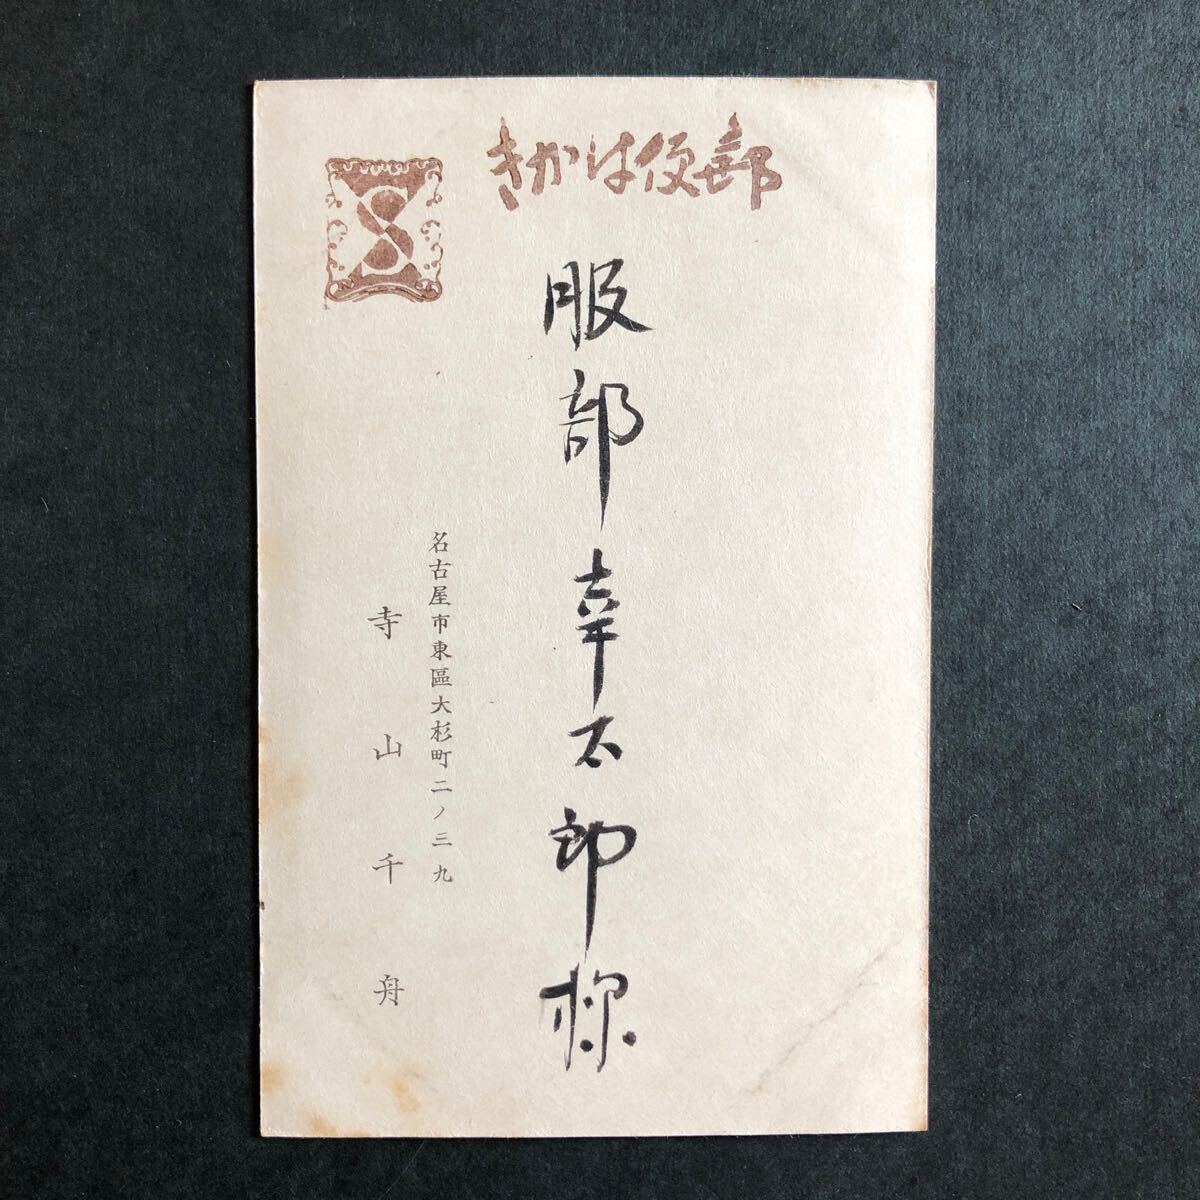 郵便はかき
S
服部幸太郎様
名古屋市東區大杉町二ノ三九
寺山千舟